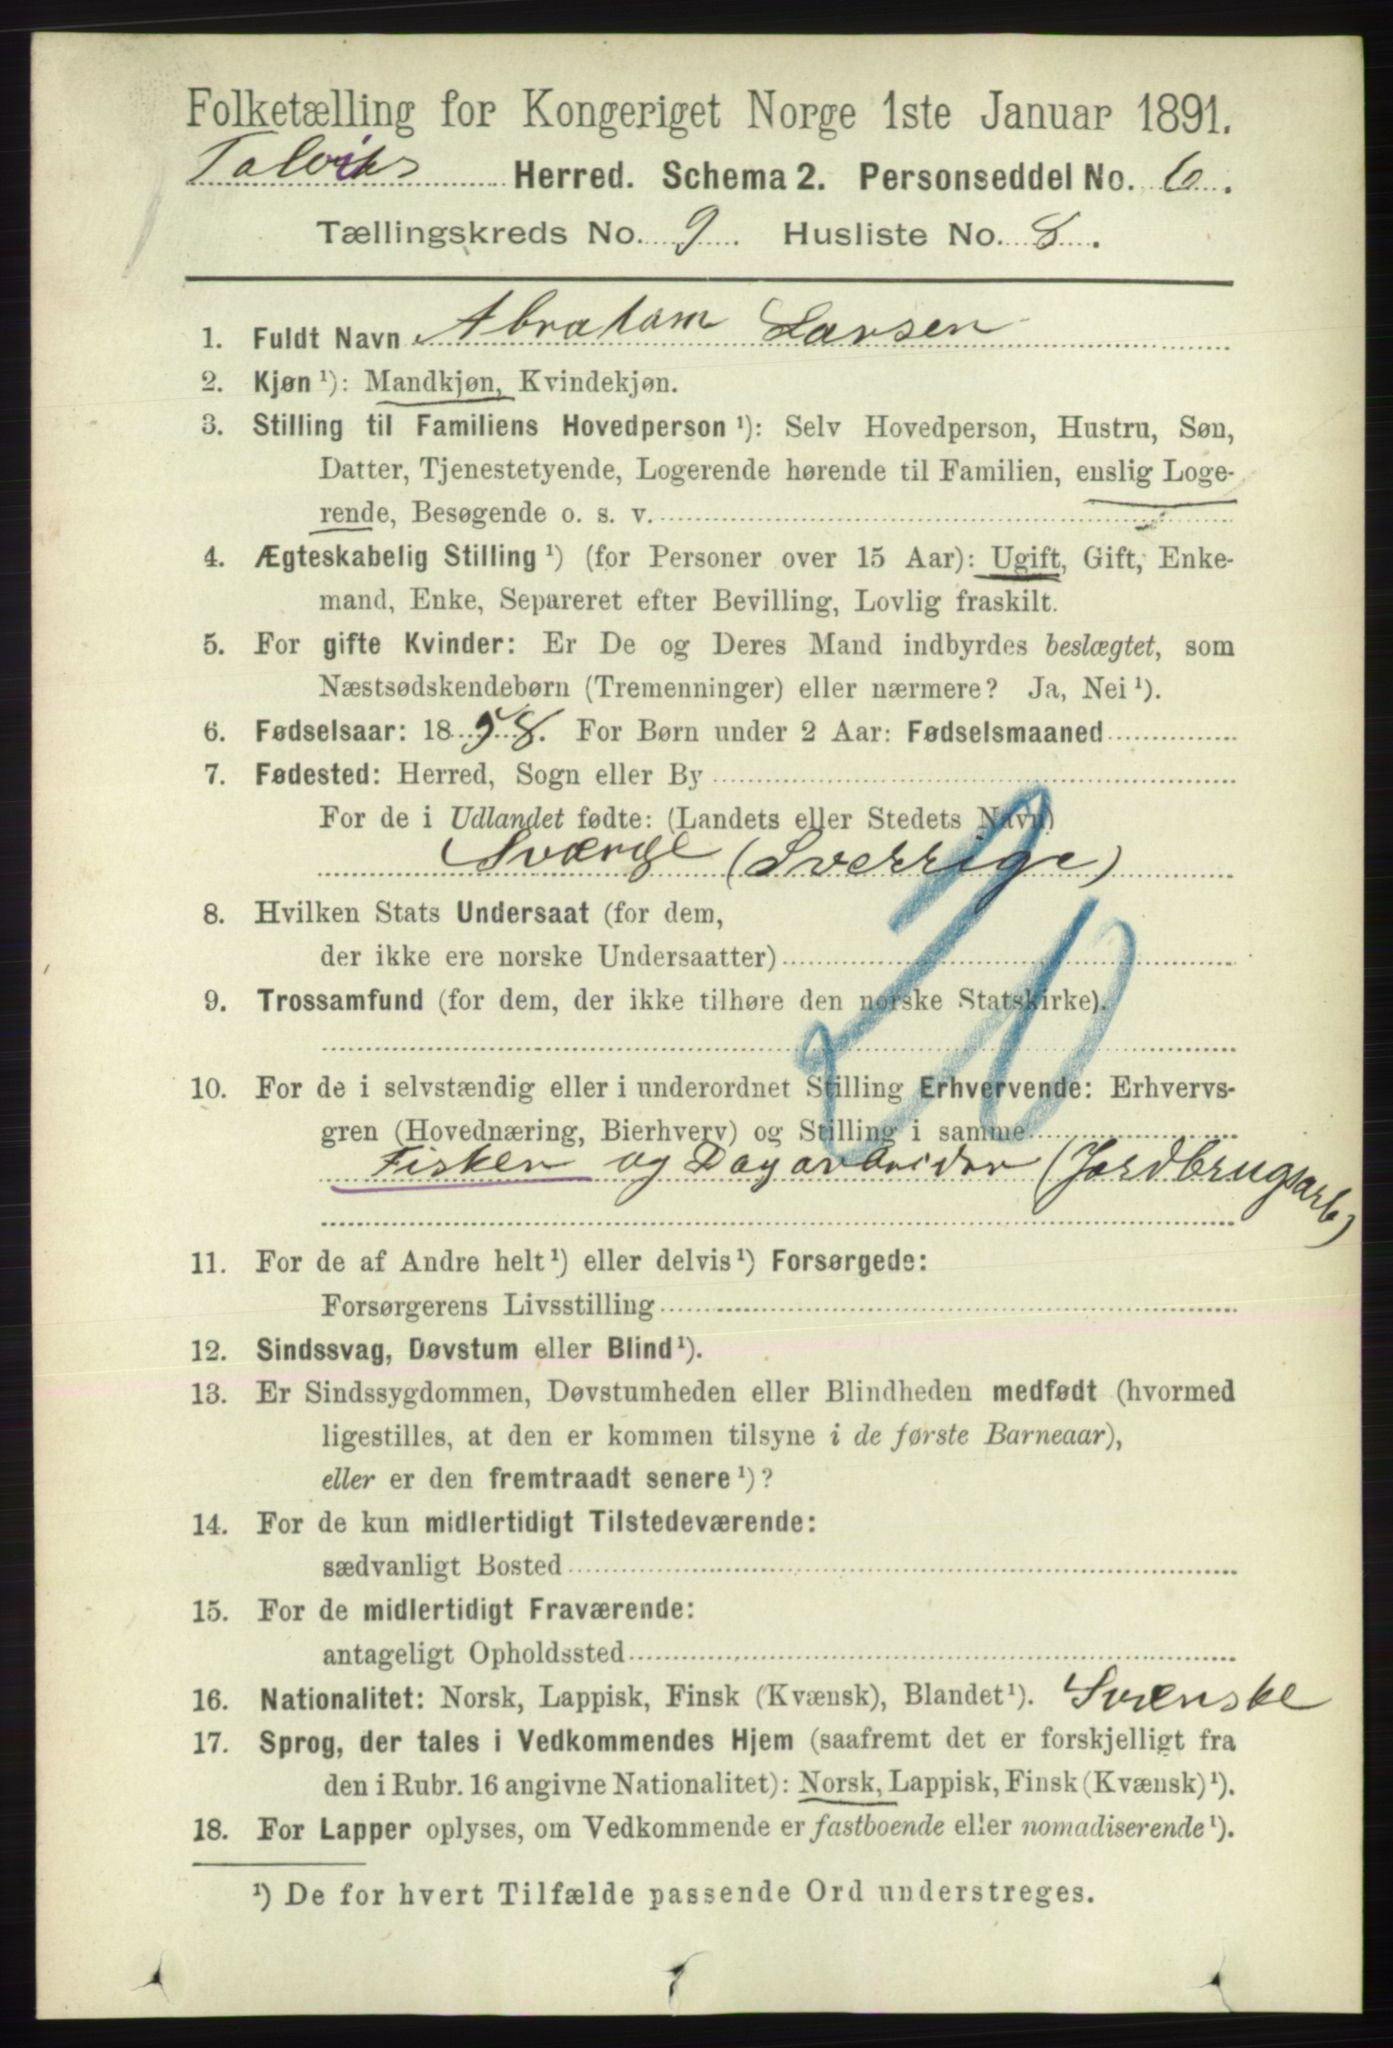 Folketælling for Kongeriget Norge 1ste Januar 1891.
Talviks Herred. Schema 2. Personseddel No. 6.
Tællingskreds No. 9. Husliste No. 8.
1. Fuldt Navn Abraham Larsen
2. Kjøn ¹): Mandkjøn, Kvindekjøn.
3. Stilling til Familiens Hovedperson ¹): Selv Hovedperson, Hustru, Søn,
Datter, Tjenestetyende, Logerende hørende til Familien, enslig Loge-
rende, Besøgende o. s. v.
4. Ægteskabelig Stilling ¹) (for Personer over 15 Aar): Ugift, Gift, Enke-
mand, Enke, Separeret efter Bevilling, Lovlig fraskilt.
5. For gifte Kvinder: Er De og Deres Mand indbyrdes beslægtet, som
Næstsødskendebørn (Tremenninger) eller nærmere? Ja, Nei ¹).
6. Fødselsaar: 1858. For Børn under 2 Aar: Fødselsmaaned
7. Fødested: Herred, Sogn eller By
For de i Udlandet fødte: (Landets eller Stedets Navn)
Sværge (Sverrige)
8. Hvilken Stats Undersaat (for dem,
der ikke ere norske Undersaatter)
9. Trossamfund (for dem, der ikke tilhøre den norske Statskirke).
10. For de i selvstændig eller i underordnet Stilling Erhvervende: Erhvervs-
gren (Hovednæring, Bierhverv) og Stilling i samme
Fisker og Dagarbeider (Jordbrugsarb)
11. For de af Andre helt ¹) eller delvis ¹) Forsørgede:
Forsørgerens Livsstilling
12. Sindssvag, Døvstum eller Blind ¹).
13. Er Sindssygdommen, Døvstumheden eller Blindheden medfødt (hvormed
ligestilles, at den er kommen tilsyne i de første Barneaar),
eller er den fremtraadt senere ¹)?
14. For de kun midlertidigt Tilstedeværende:
sædvanligt Bosted
15. For de midlertidigt Fraværende:
antageligt Opholdssted
16. Nationalitet: Norsk, Lappisk, Finsk (Kvænsk), Blandet ¹). Svenske
17. Sprog, der tales i Vedkommendes Hjem (saafremt det er forskjelligt fra
den i Rubr. 16 angivne Nationalitet): Norsk, Lappisk, Finsk (Kvænsk) ¹).
18. For Lapper oplyses, om Vedkommende er fastboende eller nomadiserende ¹).
¹) De for hvert Tilfælde passende Ord understreges.